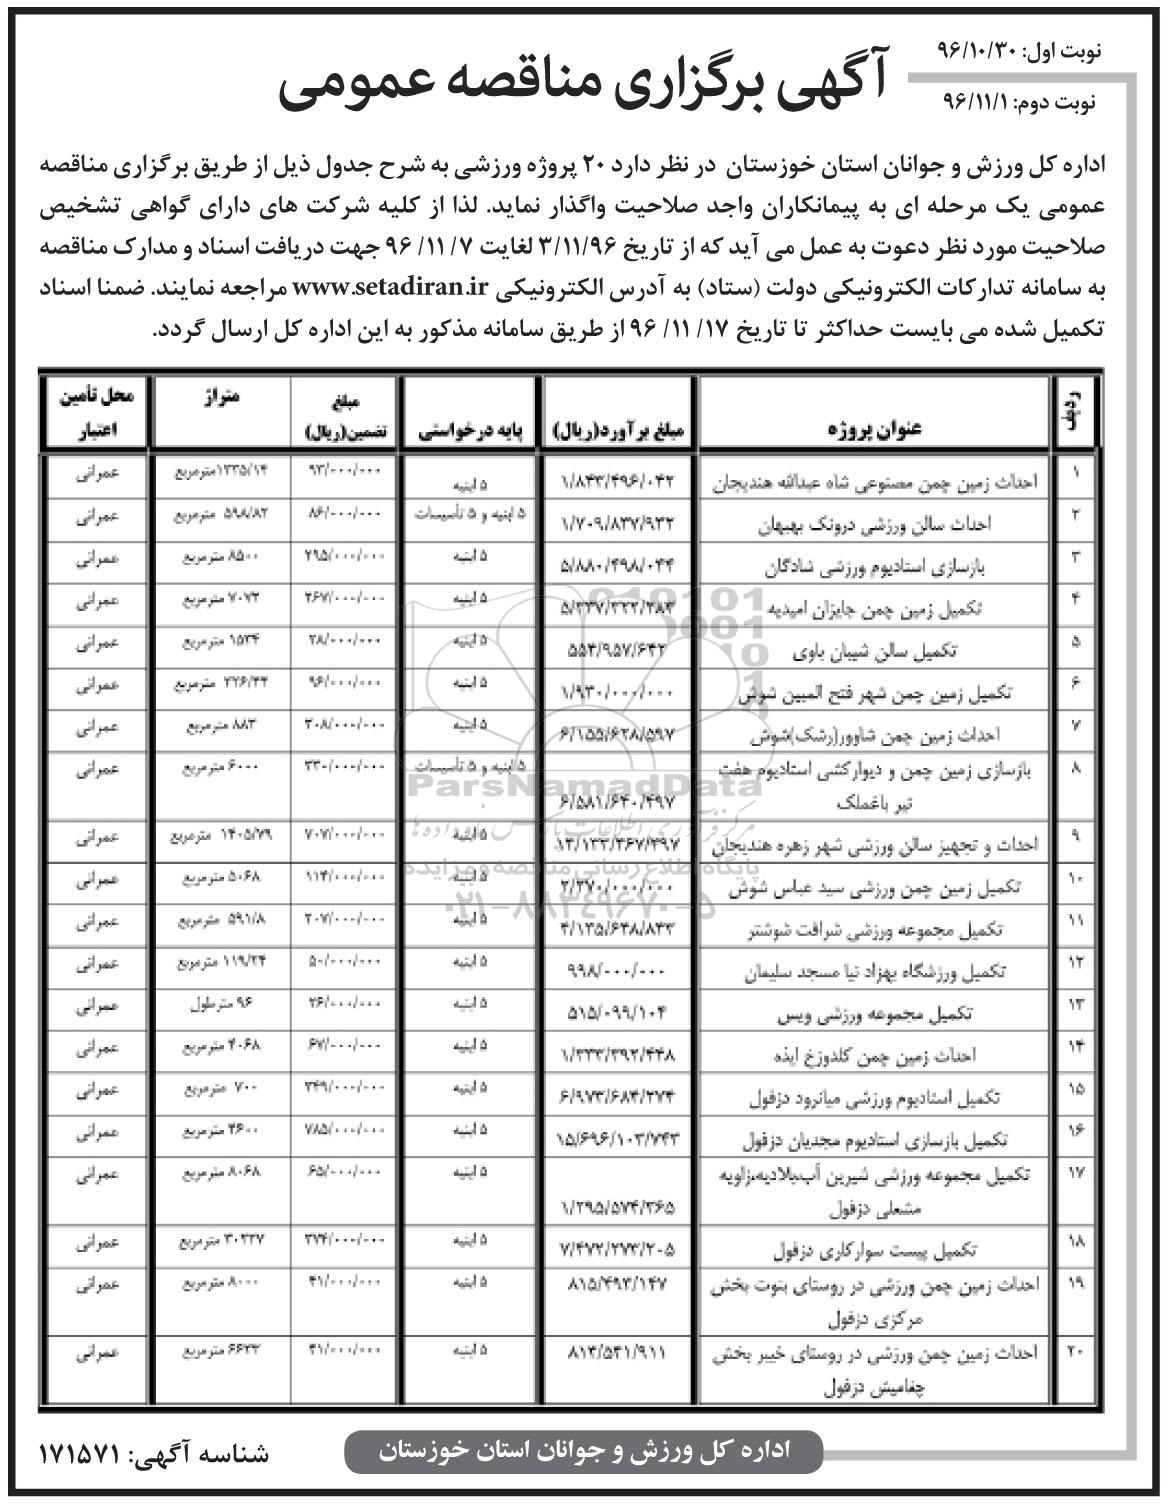 نوبت اول: ۹۶/۱۰/۳۰
آگهی برگزاری مناقصه عمومی
نوبت دوم: ۹۶/۱۱/۱
اداره کل ورزش و جوانان استان خوزستان در نظر دارد ۲۰ پروژه ورزشی به شرح جدول ذیل از طریق برگزاری مناقصه
عمومی یک مرحله ای به پیمانکاران واجد صلاحیت واگذار نماید. لذا از کلیه شرکت های دارای گواهی تشخیص
صلاحیت مورد نظر دعوت به عمل می آید که از تاریخ ۳/۱۱/۹۶ لغایت ۷/ ۱۱/ ۹۶ جهت دریافت اسناد و مدارک مناقصه
به سامانه تدارکات الکترونیکی دولت (ستاد) به آدرس الکترونیکی www.setadiran.ir مراجعه نمایند. ضمنا اسناد
تکمیل شده می بایست حداکثر تا تاریخ ۱۷/ ۱۱/ ۹۶ از طریق سامانه مذکور به این اداره کل ارسال گردد.
ردیف عنوان پروژه مبلغ برآورد(ریال) پایه درخواستی مبلغ تضمین(ریال) متراژ محل تأمین اعتبار
۱ احداث زمین چمن مصنوعی شاه عبدالله هندیجان ۱/۸۴۳/۴۹۶/۰۴۲ ۵ ابنیه ۹۳/۰۰۰/۰۰۰ ۱۳۳۵/۱۴مترمربع عمرانی
۲ احداث سالن ورزشی درونک بهبهان ۱/۷۰۹/۸۳۷/۹۳۲ ۵ ابنیه و ۵ تأسیسات ۸۶/۰۰۰/۰۰۰ ۵۹۸/۸۲ مترمربع عمرانی
۳ بازسازی استادیوم ورزشی شادگان ۵/۸۸۰/۴۹۸/۰۴۴ ۵ ابنیه ۲۹۵/۰۰۰/۰۰۰ ۸۵۰۰ مترمربع عمرانی
۴ تکمیل زمین چمن جایزان امیدیه ۵ ابنیه ۲۶۷/۰۰۰/۰۰۰ ۷۰۷۲ مترمربع عمرانی
۵ تکمیل سالن شیبان باوی ۵۵۴/۹۵۷/۶۴۲ ۵ ابنیه ۲۸/۰۰۰/۰۰۰ ۱۵۳۴ مترمربع عمرانی
۶ تکمیل زمین چمن شهر فتح المبین شوش ۱/۹۳۰/۰۰۰/۰۰۰ ۵ ابنیه ۹۶/۰۰۰/۰۰۰ مترمربع عمرانی
۷ احداث زمین چمن شاوور(رشک)شوش ۶/۱۵۵/۶۲۸/۵۹۷ ۵ ابنیه ۳۰۸/۰۰۰/۰۰۰ ۸۸۳ مترمربع عمرانی
۸ بازسازی زمین چمن و دیوارکشی استادیوم هفت ۵ ابنیه و ۵ تأسیسات ۳۳۰/۰۰۰/۰۰۰ ۶۰۰۰ مترمربع عمرانی
تیر باغملک ۶/۵۸۱/۶۴۰/۴۹۷
۹ احداث و تجهیز سالن ورزشی شهر زهره هندیجان ۵ ابنیه ۷۰۷/۰۰۰/۰۰۰ ۱۴۰۵/۷۹ مترمربع عمرانی
۱۰ تکمیل زمین چمن ورزشی سید عباس شوش ۲/۲۷۰/۰۰۰/۰۰۰ ۵ ابنیه ۱۱۴/۰۰۰/۰۰۰ ۵۰۶۸ مترمربع عمرانی
۱۱ تکمیل مجموعه ورزشی شرافت شوشتر ۴/۱۳۵/۶۴۸/۸۴۳ ۵ ابنیه ۲۰۷/۰۰۰/۰۰۰ ۵۹۱/۸ مترمربع عمرانی
۱۲ تکمیل ورزشگاه بهزاد نیا مسجد سلیمان ۹۹۸/۰۰۰/۰۰۰ ۵ ابنیه ۵۰/۰۰۰/۰۰۰ ۱۱۹/۲۴ مترمربع عمرانی
۱۳ تکمیل مجموعه ورزشی ویس ۵۱۵/۰۹۹/۱۰۴ ۵ ابنیه ۲۶/۰۰۰/۰۰۰ ۹۶ مترطول عمرانی
۱۴ احداث زمین چمن کلدوزخ ایذه ۱/۳۳۳/۳۹۲/۴۴۸ ۵ ابنیه ۶۷/۰۰۰/۰۰۰ ۴۰۶۸ مترمربع عمرانی
۱۵ تکمیل استادیوم ورزشی میانرود دزفول ۶/۹۷۳/۶۸۴/۲۷۴ ۵ ابنیه ۳۴۹/۰۰۰/۰۰۰ ۷۰۰ مترمربع عمرانی
۱۶ تکمیل بازسازی استادیوم مجدیان دزفول ۱۵/۶۹۶/۱۰۳/۷۴۳ ۵ ابنیه ۷۸۵/۰۰۰/۰۰۰ ۴۶۰۰ مترمربع عمرانی
۱۷ تکمیل مجموعه ورزشی شیرین آب،بلادیه،زاویه ۵ ابنیه ۶۵/۰۰۰/۰۰۰ ۸۰۶۸ مترمربع عمرانی
مشعلی دزفول ۱/۲۹۵/۵۷۴/۳۶۵
۱۸ تکمیل پیست سوارکاری دزفول ۷/۴۷۲/۲۷۳/۲۰۵ ۵ ابنیه ۳۷۴/۰۰۰/۰۰۰ ۳۰۲۳۷ مترمربع عمرانی
۱۹ احداث زمین چمن ورزشی در روستای بنوت بخش ۸۱۵/۴۹۲/۱۴۷ ۵ ابنیه ۴۱/۰۰۰/۰۰۰ ۸۰۰۰ مترمربع عمرانی
مرکزی دزفول
۲۰ احداث زمین چمن ورزشی در روستای خیبر بخش ۸۱۴/۵۴۱/۹۱۱ ۵ ابنیه ۴۱/۰۰۰/۰۰۰ ۶۶۳۳ مترمربع عمرانی
چغامیش دزفول
ParsNamadData
پایگاه اطلاع رسانی مناقصه و مزایده
۰۲۱-۸۸۳۴۹۶۷۰-۵
اداره کل ورزش و جوانان استان خوزستان
شناسه آگهی: ۱۷۱۵۷۱